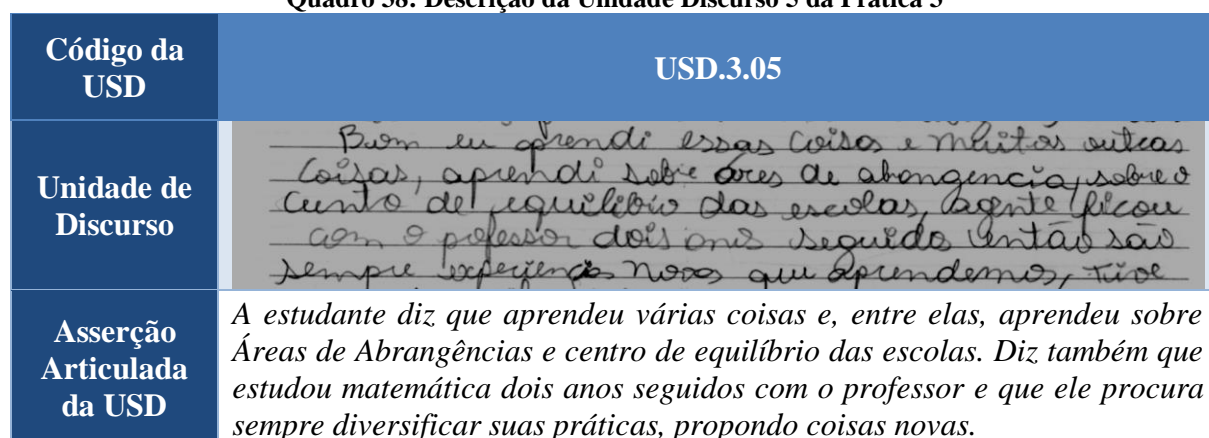 Quadro 58: Descrição da Unidade Discurso 5 da Prática 3
Código da USD
USD.3.05
Unidade de Discurso
Bom eu aprendi essas coisas e muitas outras
coisas, aprendi sobre áres de abongencia, sobre o
cunto de equilibrio das escolas, agente ficou
com o pofessor dois anos seguido então são
sempre experiencias novas que aprendemos, tive
Asserção Articulada da USD
A estudante diz que aprendeu várias coisas e, entre elas, aprendeu sobre
Áreas de Abrangências e centro de equilíbrio das escolas. Diz também que
estudou matemática dois anos seguidos com o professor e que ele procura
sempre diversificar suas práticas, propondo coisas novas.